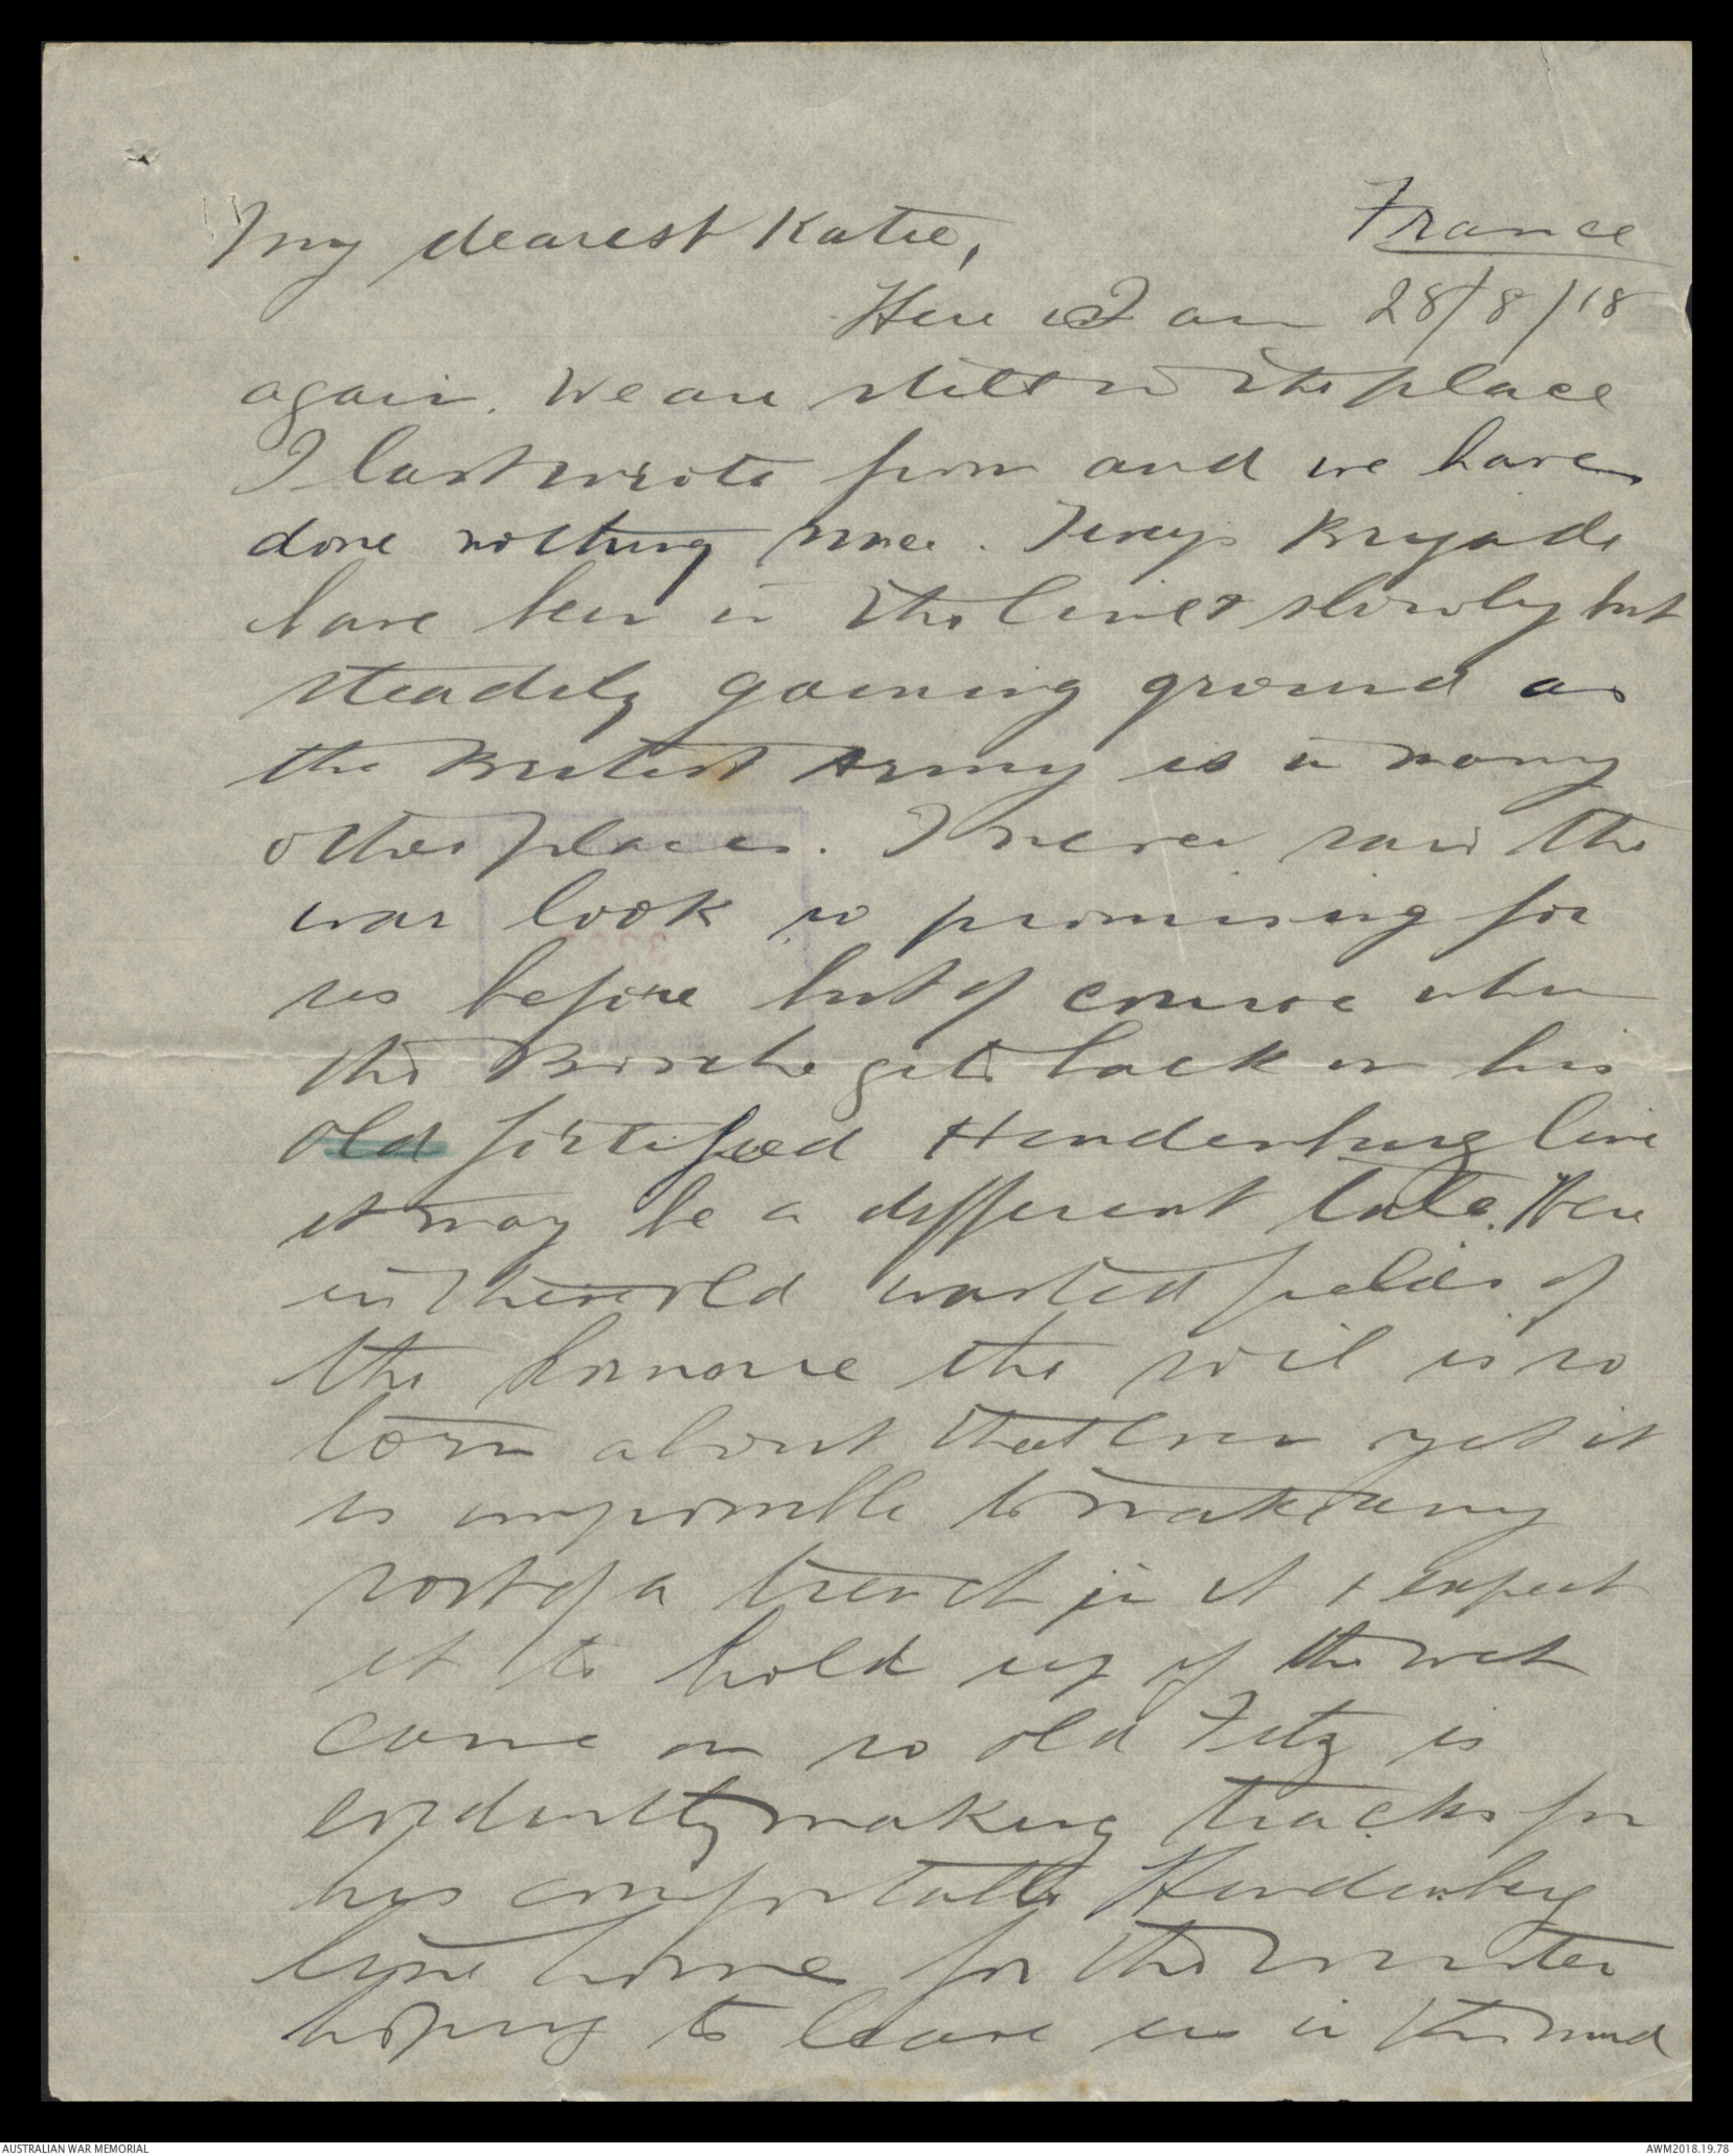 France
My dearest Katie,
28/8/18
Here I am
again. We are still in the place
I last wrote from and we have
done nothing since. Brigade
have been in the line & slowly but
steadily gaining ground as
the British Army is in many
other places. I never saw the
war look so promising for
us before but of course when
the Bosche gets back on his
old fortified Hindenburg line
it may be a different tale. Here
in these old wasted fields of
the Somme the soil is so
torn about that even yet it
is impossible to make any
sort of a trench in it & expect
it to hold up if the wet
come on so old Fritz is
evidently making tracks for
his comfortable Hindenburg
line home for the winter
hoping to leave us in the mud
AUSTRALIAN WAR MEMORIAL
AWM2018.19.78